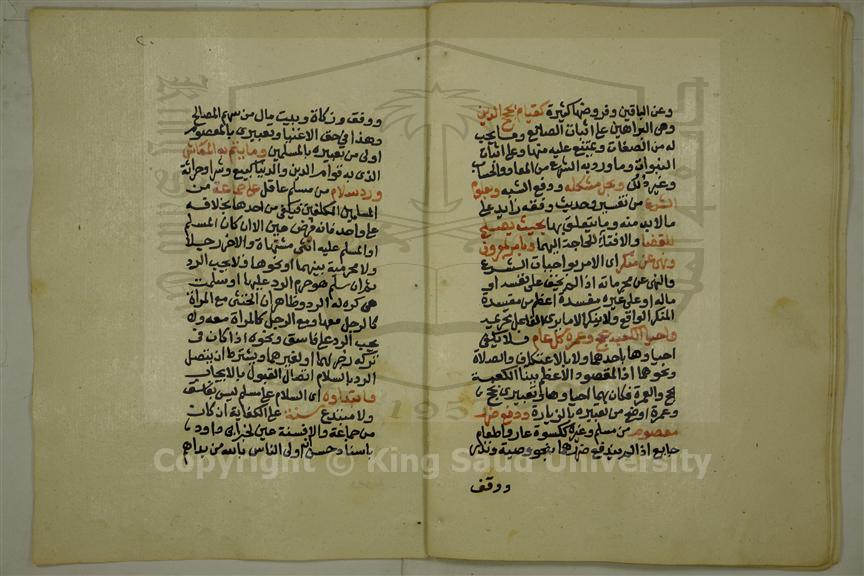 وعن الباقين وفروضها كثيرة كقيام بحج الدين
وهي البراهين على اثبات الصانع وما يجب
له من الصفات ويمتنع عليه منها وعلى اثبات
النبوات وما ورد به الشرع من المعاد والحساب
وغير ذلك وبحل مشكله ودفع الشبه وعلوم
الشرع من تفسير وحديث وفقه زائد على
ما لا بد منه وما يتعلق بها بحيث يصلح
للقضا والافتاء للحاجة اليهما وامر بمعروف
ونهي عن منكر اي الامر بواجبات الشرع
والنهي عن محرماته اذا لم يخف على نفسه او
ماله او على غيره مفسدة اعظم من مفسدة
المنكر الواقع ولا ينكر الا ما يرى الفاعل تحريمه
واحيا الكعبة بحج وعمرة كل عام فلا يكفي
احياوها باحدهما ولا بالاعتكاف والصلاة
ونحوهما اذ المقصود الاعظم ببنا الكعبة
الحج والعمرة فكان بهما احياوها وتعبيري بحج
وعمرة اوضح من تعبيره بالزيارة ودفع ضرر
معصوم من مسلم وغيره ككسوة عار واطعام
جايع اذا لم يندفع ضررهما بنحو وصية ونذر
ووقف
ووقف وزكاة وبيت مال من سهم المصالح
وهذا في حق الاغنيا وتعبيري بالمعصوم
اولى من تعبيره بالمسلمين وما يتم به المعاش
الذي به قوام الدين والدنيا كبيع وشرا وحراثة
ورد سلام من مسلم عاقل على جماعة من
المسلمين المكلفين فيكفي من احدهم بخلافه
على واحد فانه فرض عين الا ان كان المسلم
او المسلم عليه انثى مشتهاة والاخر رجلا
ولا محرمية بينهما او نحوها ولا يجب الرد
ثم ان سلم هو حرم الرد عليها او سلمت
هي كره له الرد وظاهر ان الخنثى مع المراة
كالرجل معها ومع الرجل كالمراة معه ولا
يجب الرد على فاسق ونحوه اذا كان في
تركه زجر لهما او لغيرهما ويشترط ان يتصل
الرد بالسلام اتصال القبول بالايجاب
وابتداوه اي السلام على مسلم ليس بفاسق
ولا مبتدع سنة على الكفاية ان كان
من جماعة والا فسنة عين لخبر ابي داود
باسناد حسن ان اولى الناس بالله من بداهم
Copyright © King Saud University
1957